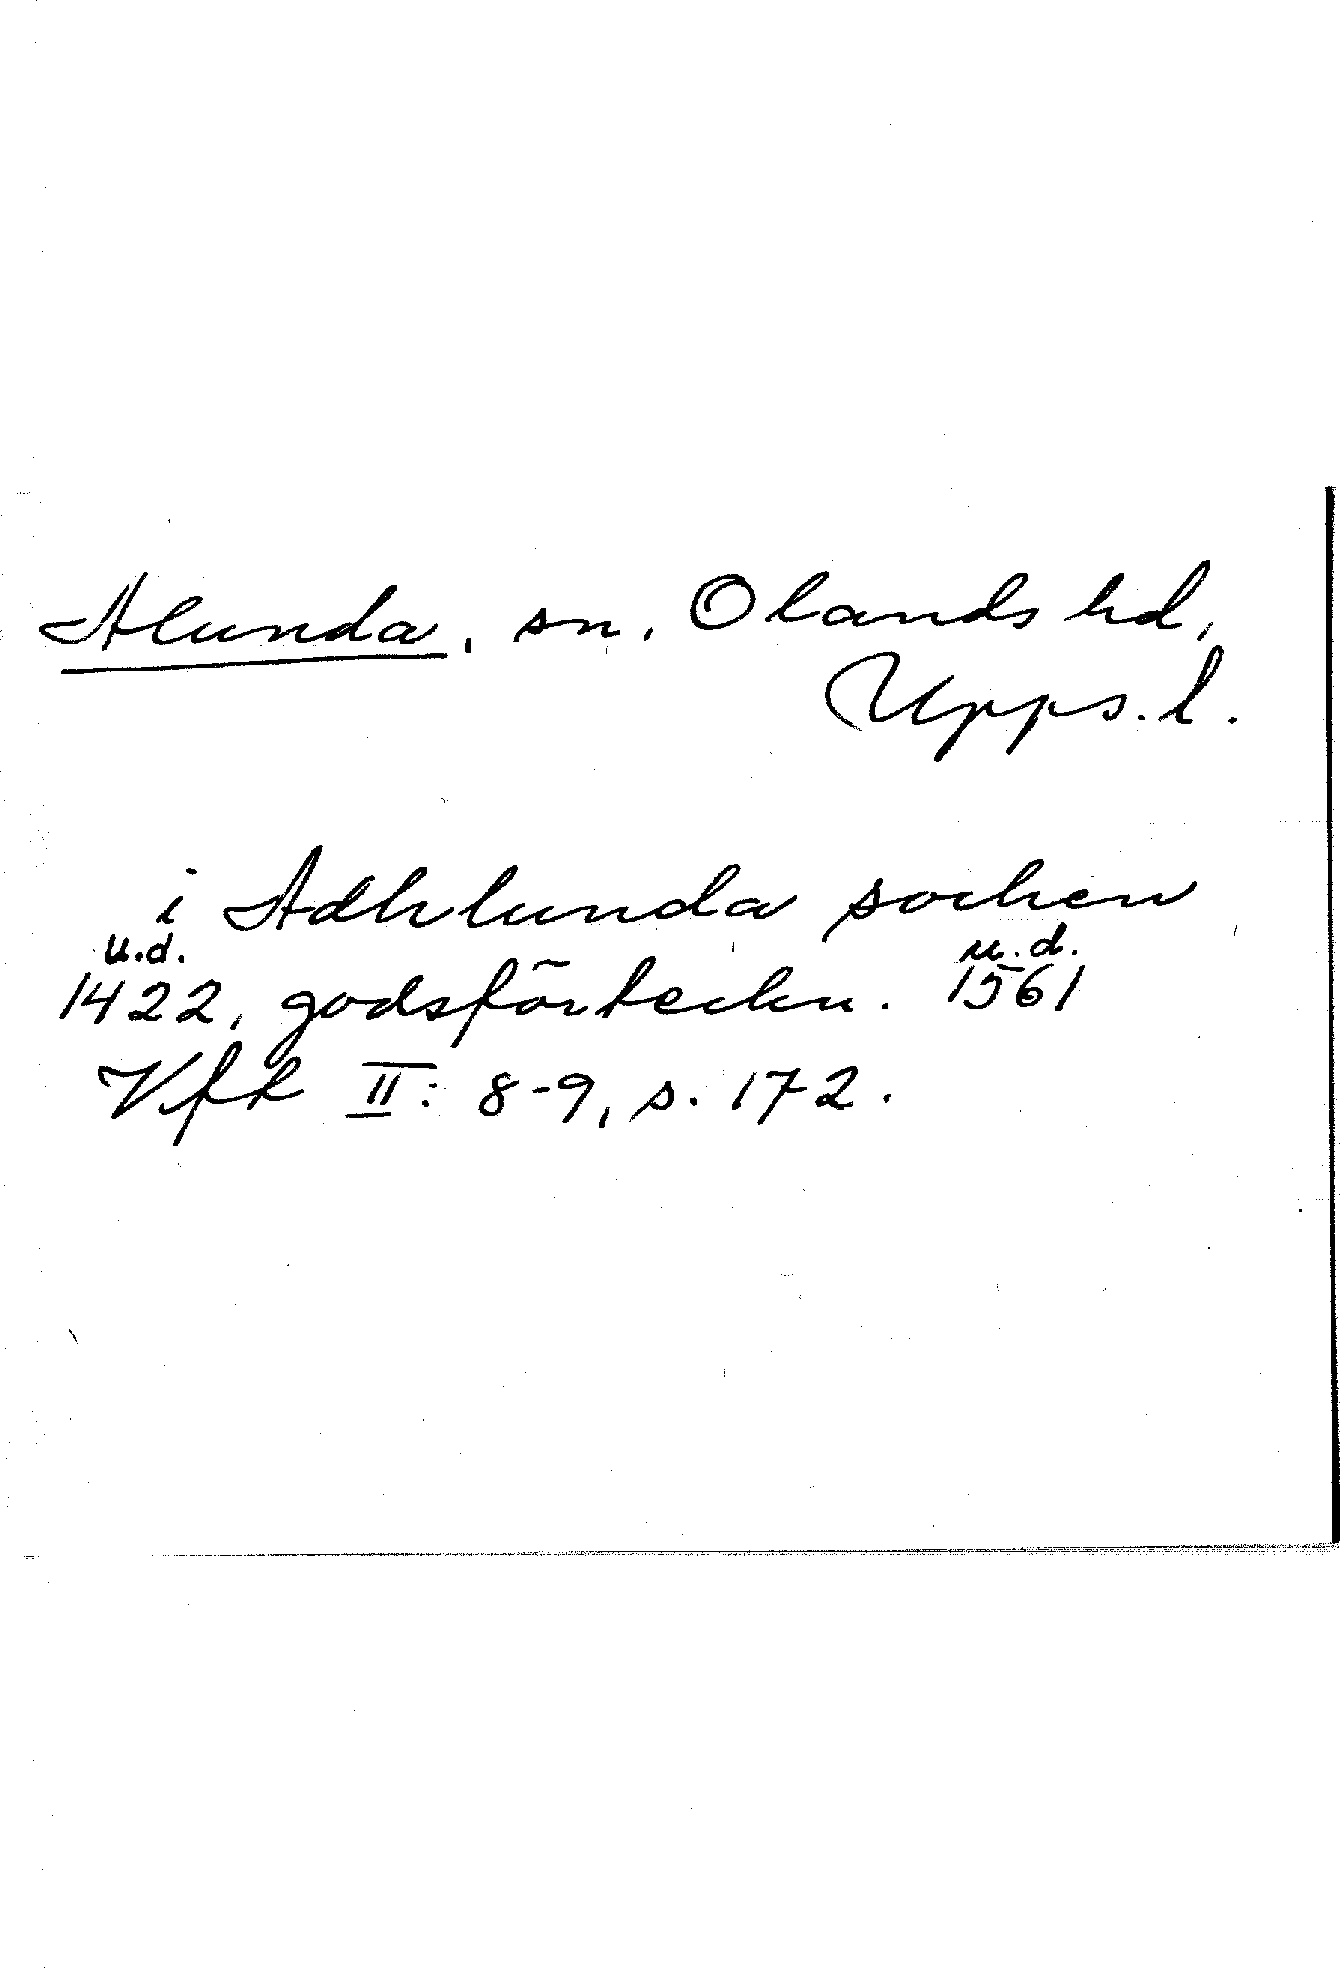 Alunda, sn, Olands hd,
Upps. l.
i Adhlunda sochen
u.d. u.d.
1422, godsförteckn. 1561
Vfk II: 8-9, s. 172.